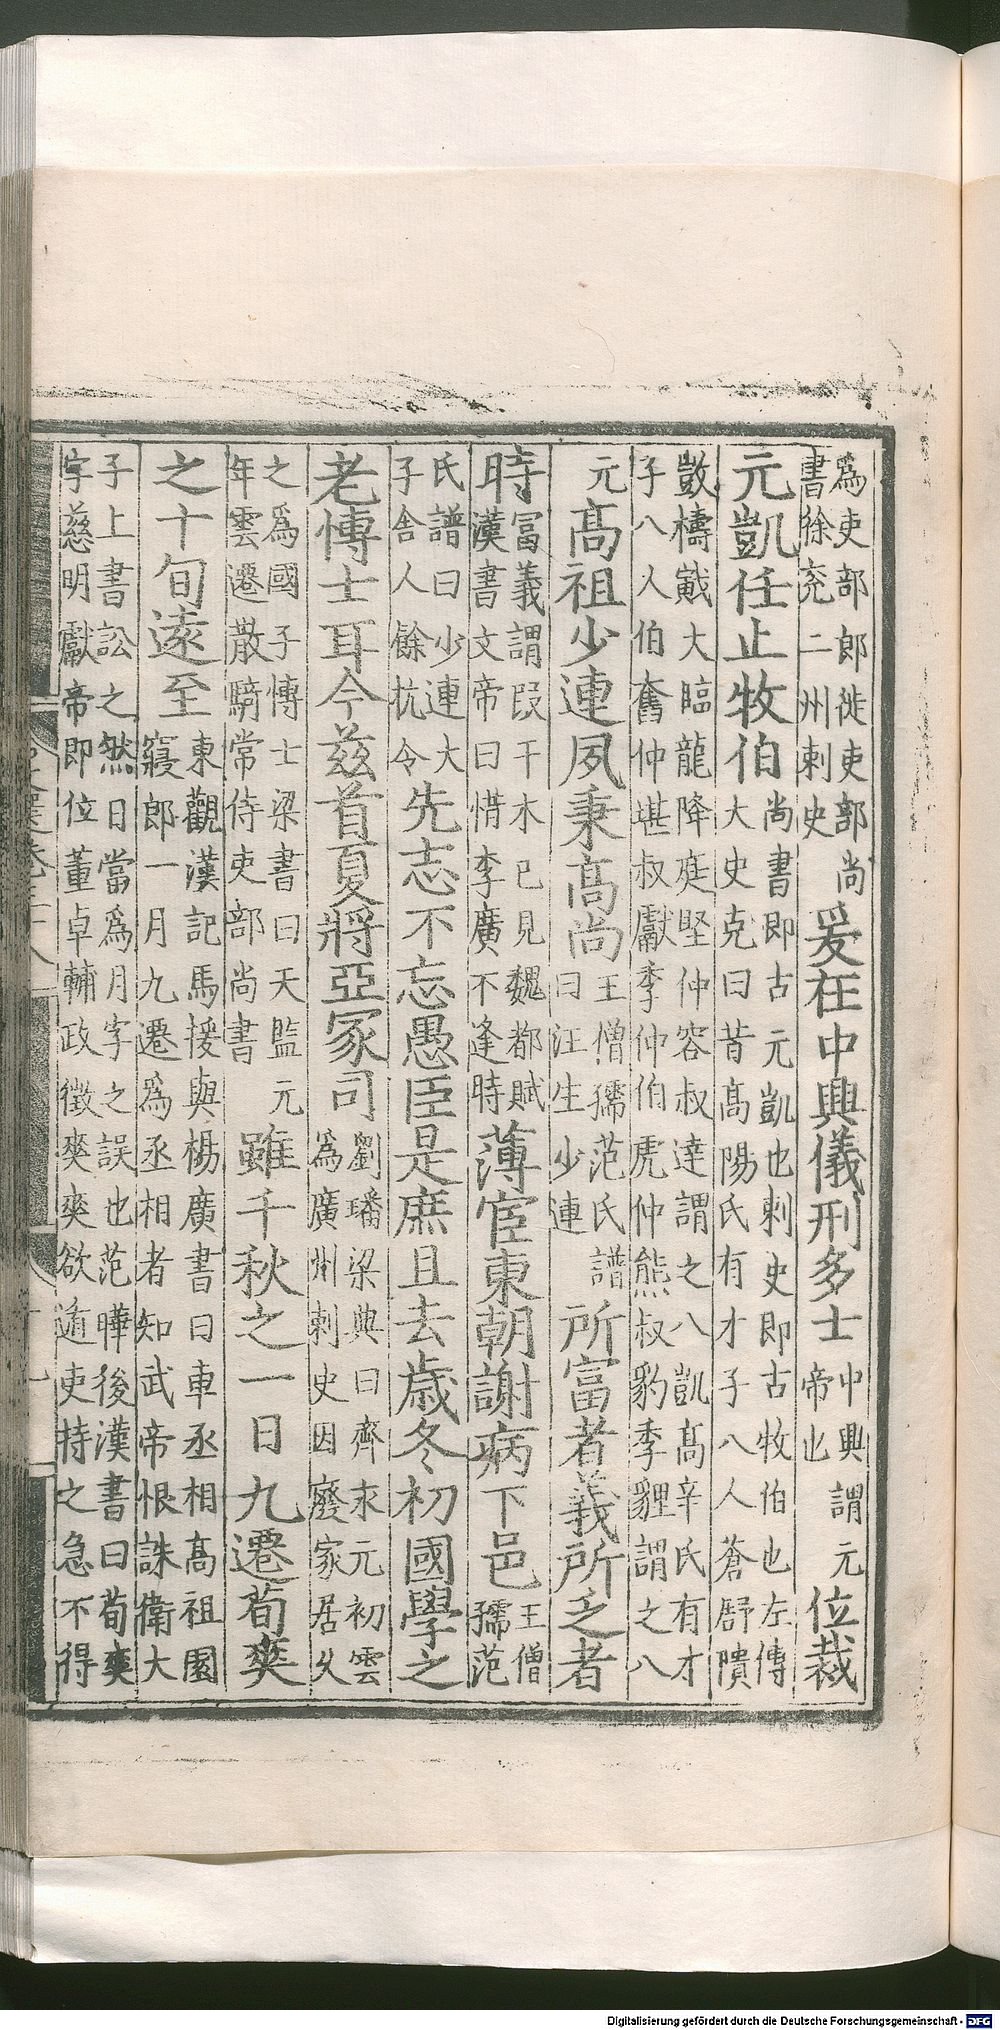 爲吏部郎徙吏部尚書徐兖二州刺史爰在中興儀刑多士中興謂元帝也位裁
元凱任止牧伯尚書即古元凱也刺史即古牧伯也左傳大史克曰昔髙陽氏有才子八人蒼舒隤
敳檮戭大臨龍降庭堅仲容叔達謂之八凱髙辛氏有才子八人伯奮仲堪叔獻季仲伯虎仲熊叔豹季貍謂之八
元髙祖少連夙秉髙尚王僧孺范氏譜曰汪生少連所富者義所乏者
時冨義謂叚干木已見魏都賦漢書文帝曰惜李廣不逢時薄宦東朝謝病下邑王僧孺范
氏譜曰少連大子舍人餘抗令先志不忘愚臣是庶且去歳冬初國學之
老愽士耳今兹首夏將亞冢司劉璠梁典曰齊永元初雲爲廣州刺史因廢家居乆
之爲國子愽士梁書曰天監元年雲遷散騎常侍吏部尚書雖千秋之一日九遷荀爽
之十旬逺至東觀漢記馬援與楊廣書曰車丞相髙祖園寢郎一月九遷爲丞相者知武帝恨誅衛大
子上書訟之然日當爲月字之誤也范曄後漢書曰荀爽字慈明獻帝即位董卓輔政徵爽爽欲遁吏持之急不得
Digitalisierung gefördert durch die Deutsche Forschungsgemeinschaft - DFG